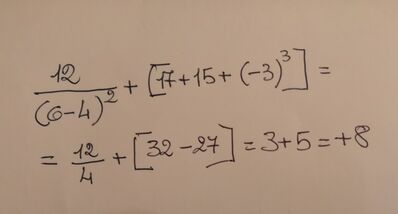 12/(6-4)² + [17+15+(-3)³] =
= 12/4 + [32-27] = 3+5 = +8